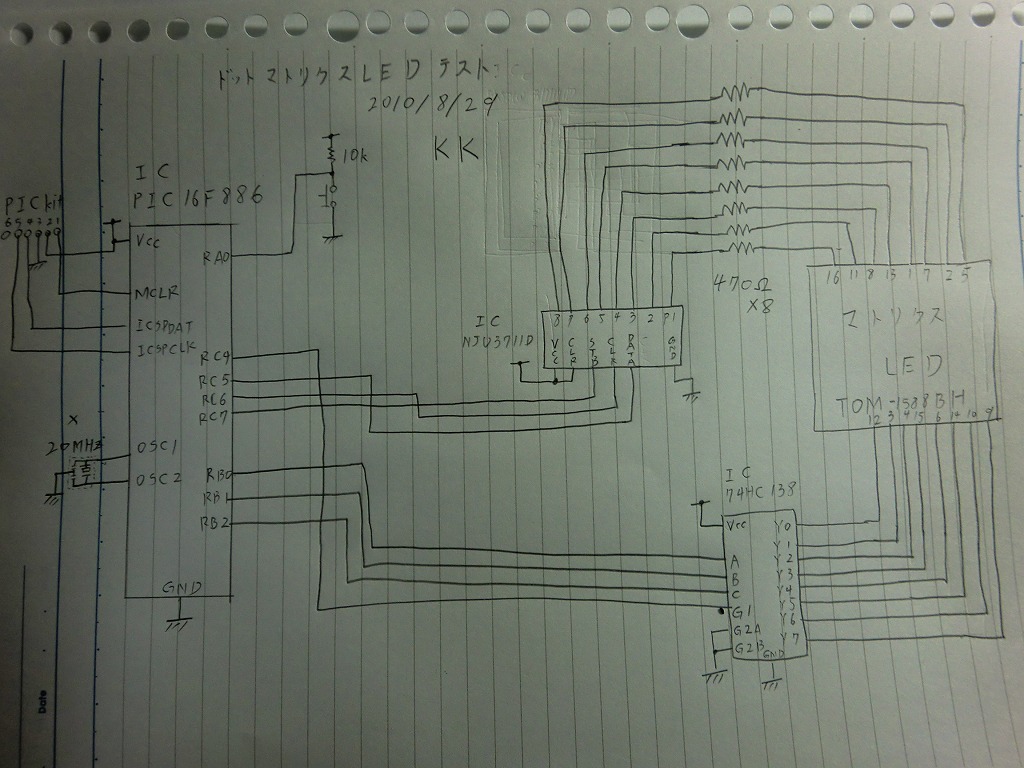 ドットマトリクスLEDテスト
2010/8/29
KK
10k
IC
PIC16F886
PICkit
654321
Vcc
RA0
MCLR
ICSPDAT
ICSPCLK
RC4
RC5
RC6
RC7
X
20MHz
OSC1
OSC2
RB0
RB1
RB2
GND
IC
NJU3711D
8 7 6 5 4 3 2 P1
VCC
CLR
STB
CLK
DATA
GND
470Ω
×8
16 11 8 13 1 7 2 5
マトリクス
LED
TOM-1588BH
12 3 4 15 6 14 10 9
IC
74HC138
Vcc
A
B
C
G1
G2A
G2B
Y0
Y1
Y2
Y3
Y4
Y5
Y6
Y7
GND
Date